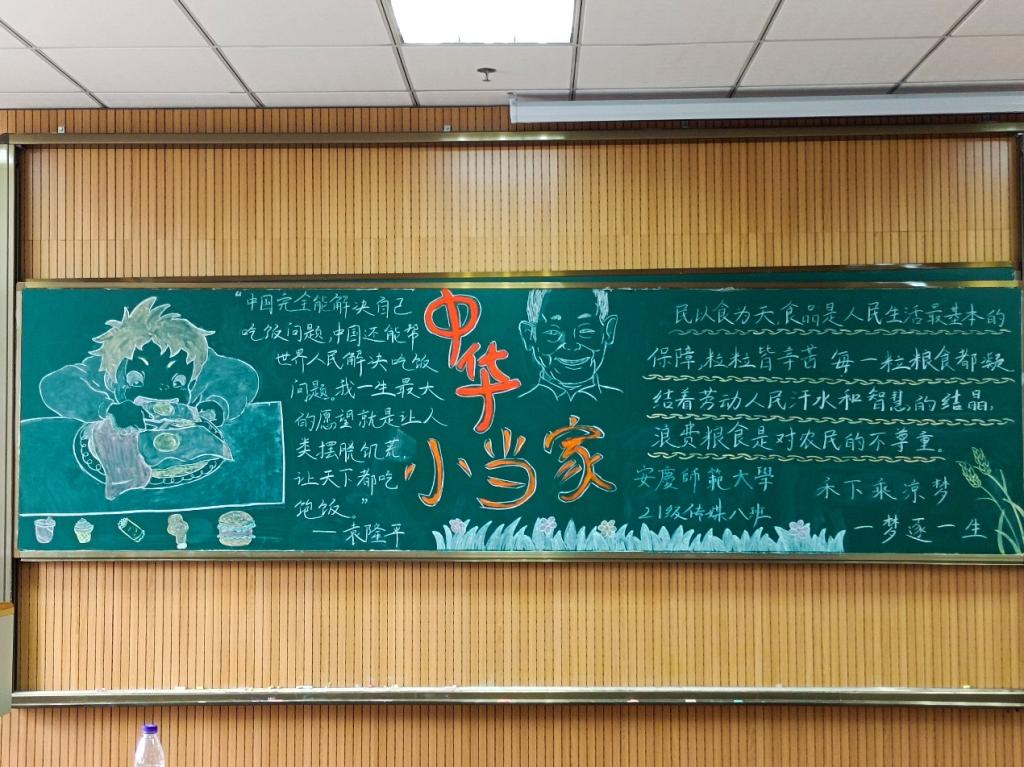 “中国完全能解决自己
吃饭问题,中国还能帮
世界人民解决吃饭
问题,我一生最大
的愿望就是让人
类摆脱饥荒,
让天下都吃
饱饭。”
—袁隆平
中华
小当家
民以食为天,食品是人民生活最基本的
保障,粒粒皆辛苦 每一粒粮食都凝
结着劳动人民汗水和智慧的结晶,
浪费粮食是对农民的不尊重。
安慶師範大學
21级传媒八班
禾下乘凉梦
一梦逐一生